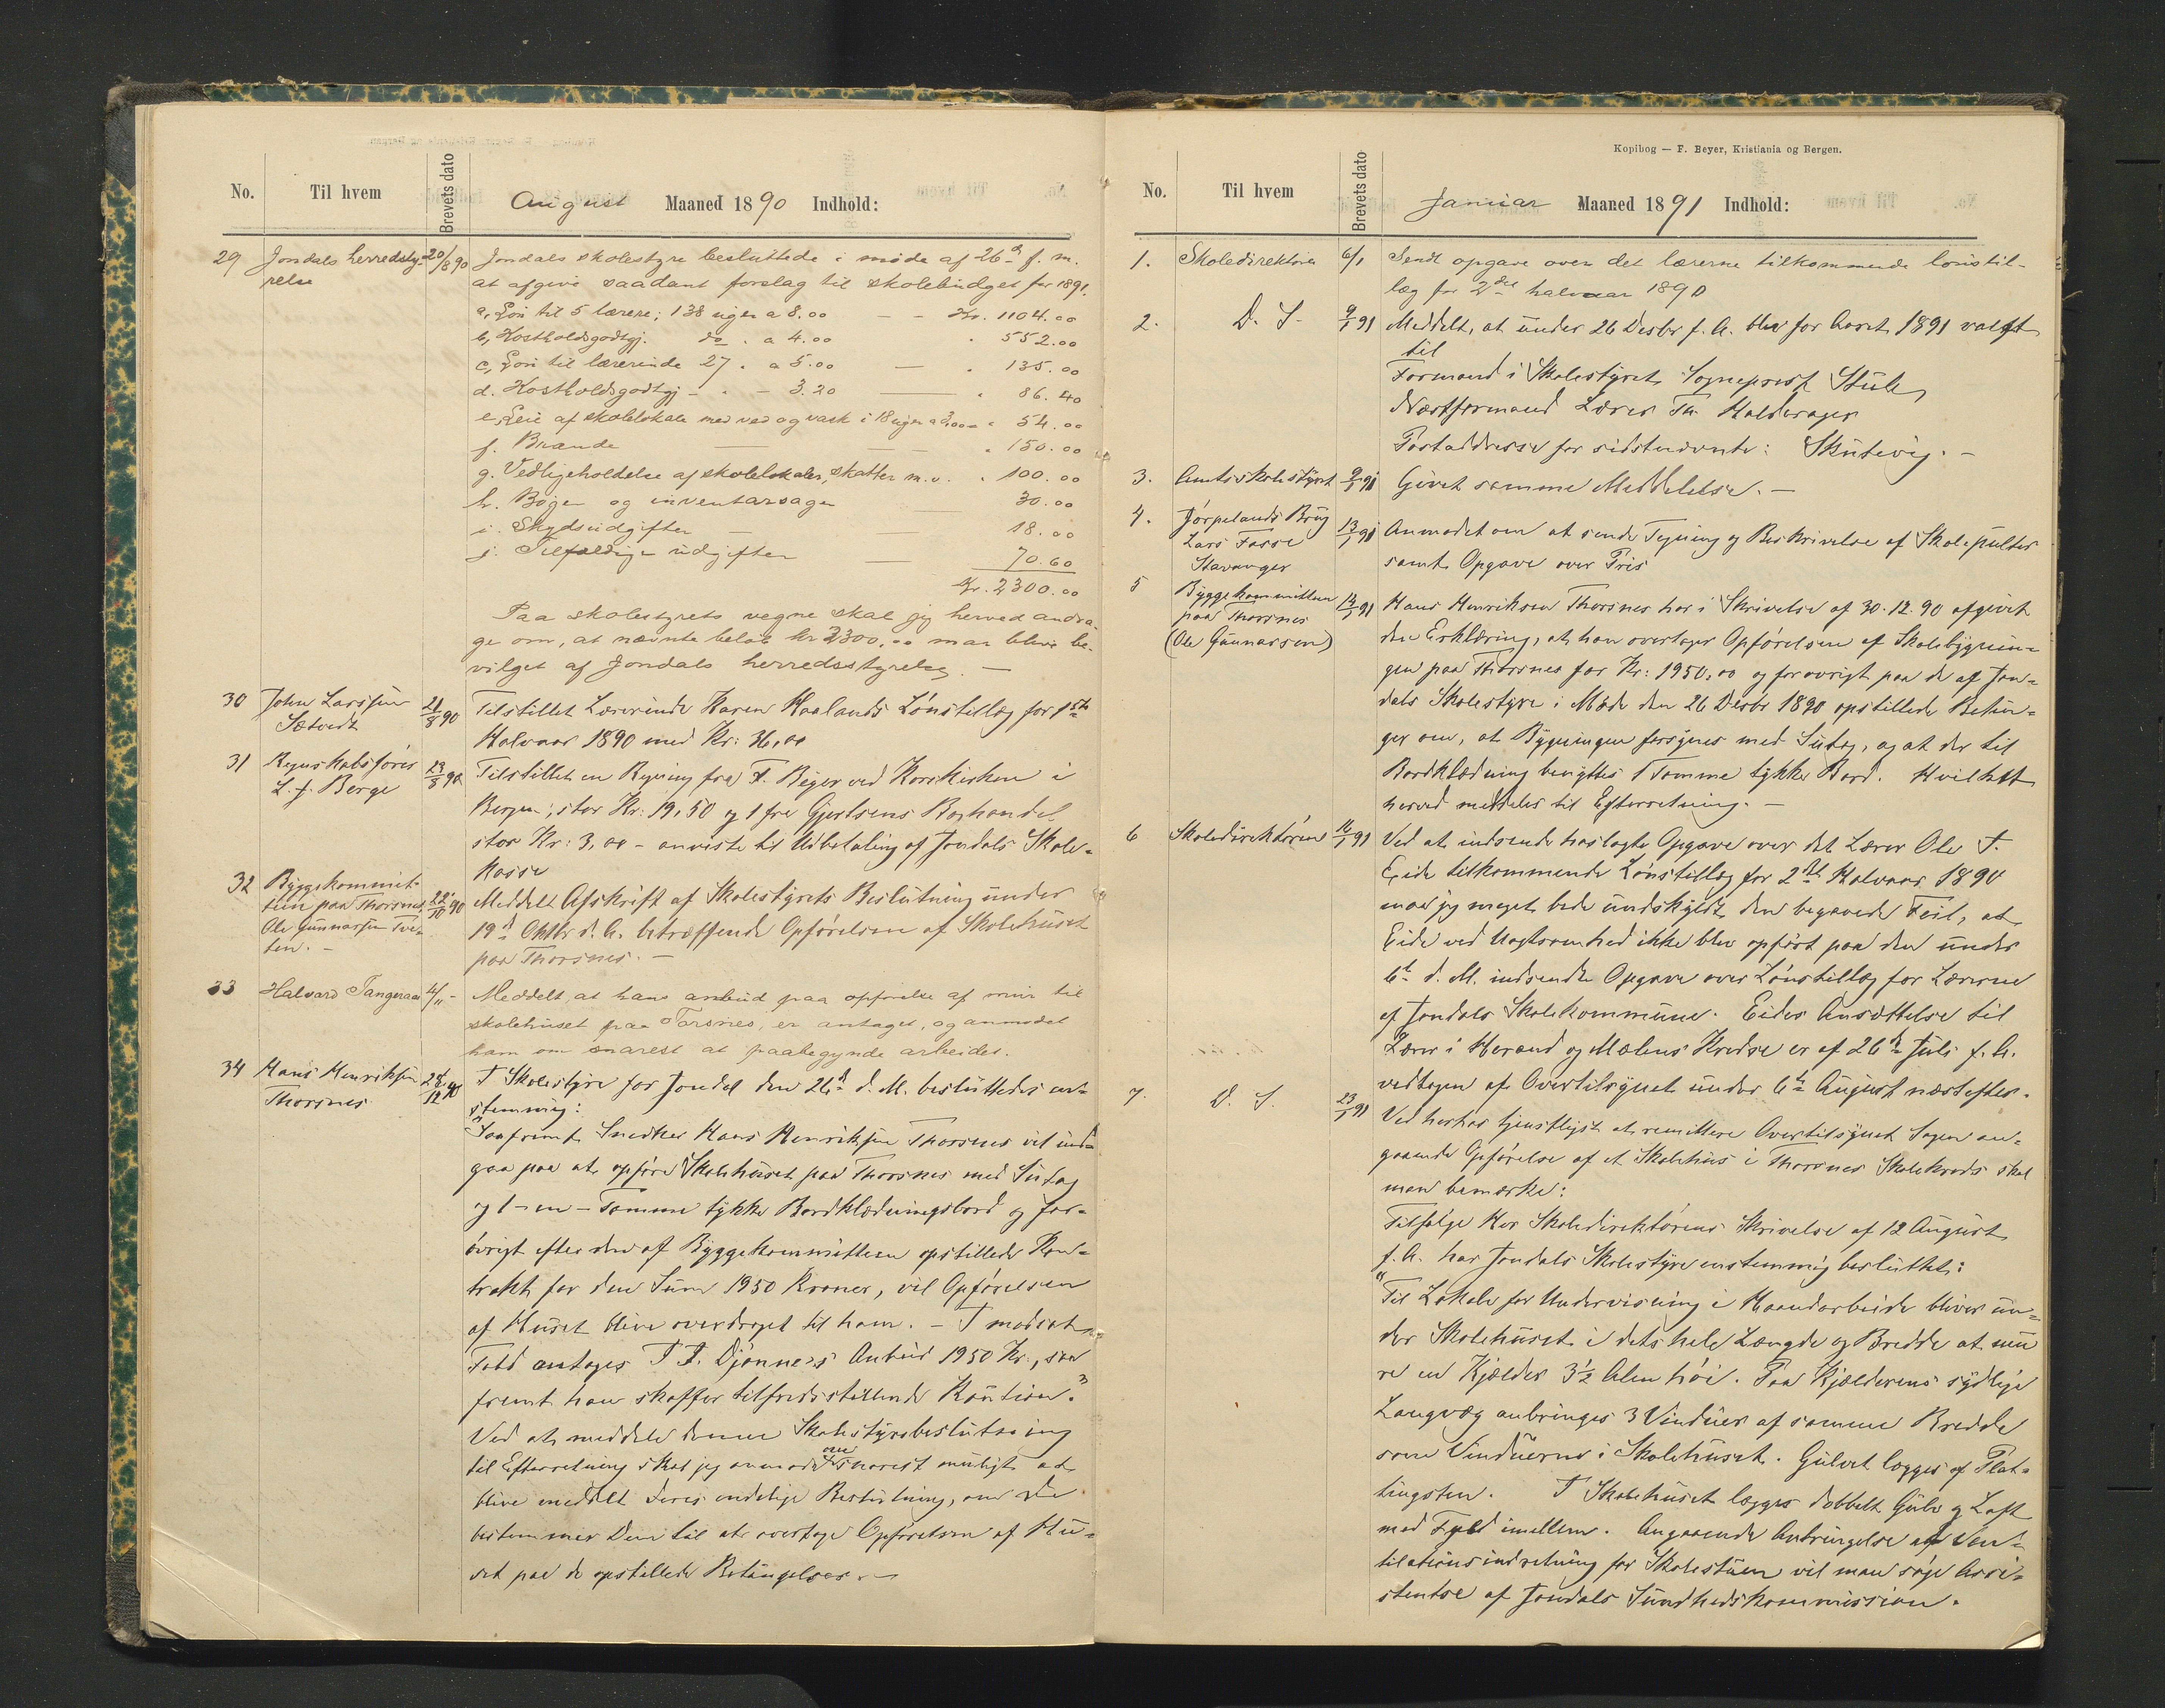 No. Til hvem Brevets dato August Maaned 1890 Indhold:
29 Jondals herredsty- 20/8 90 Jondals skolestyre besluttede i møde af 26de f. m.
relse at afgive saadant forslag til skolebudget for 1891.
a, Løn til 5 lærere; 138 uger a 8.00 — — Kr. 1104.00
b, Kostholdsgodtgj. do . a 4.00 " 552.00
c, Løn til lærerinde 27 " a 5.00 — " 135.00
d. Kostholdsgodtgj — " — 3.20 — " 86.40
e. Leie af skolelokale med ved og vask i 18 uger a 3,00 " 54.00
f. Brænde — — — " 150.00
g. Vedligeholdelse af skolelokaler, skatter m.v. " 100.00
h. Bøger og inventarsager 30.00
i. Skydsudgifter — — 18.00
j. Tilfældige udgifter — 70.60
Kr. 2300.00
Paa skolestyrets vegne skal jeg herved andra-
ge om, at nævnte beløb kr 2300,00 maa blive be-
vilget af Jondals herredsstyrelse. —
30 John Larssen 21/8 90 Tilstillet Lærerinde Karen Haalands Lønstillæg for 1ste
Sætvedt Halvaar 1890 med Kr: 36,00
31 Regnskabsfører 23/8 90 Tilstillet en Regning fra F. Beyer ved Korskirken i
L. J. Berge Bergen, stor Kr: 19,50 og 1 fra Gjertsens Boghandel
stor Kr: 3,00 – anviste til Udbetaling af Jondals Skole-
kasse
32 Byggekommit- 22/10 90 Meddelt Afskrift af Skolestyrets Beslutning under
teen paa Thorsnes 19d Oktbr d. A. betræffende Opførelsen af Skolehuset
Ole Gunnarsen Tve- paa Thorsnes. —
ten. —
33 Halvard Tangeraas 4/11 – Meddelt, at hans anbud paa opførelse af mur til
skolehuset paa Torsnes, er antaget, og anmodet
ham om snarest at paabegynde arbeidet.
34 Hans Henriksen 28/12 90 I Skolestyre for Jondal den 26de d. M. besluttedes en-
Thorsnes stemmig:
"Saafremt Snedker Hans Henriksen Thorsnes vil ind-
gaa paa at opføre Skolehuset paa Thorsnes med Sutag
og 1 – en – Tomme tykke Bordklædningsbord og for-
øvrigt efter den af Byggekommitteen opstillede Kon-
trakt for den Sum 1950 Kroner, vil Opførelsen
af Huset blive overdraget til ham. – I modsat
Fald antages T. T. Djønnes's Anbud 1950 Kr., saa
fremt han skaffer tilfredsstillende Kaution."
Ved at meddele denne Skolestyrebeslutning
til Efterretning skal jeg anmode om snarest muligt at
blive meddelt Deres endelige Beslutning, om De
bestemmer Dem til at overtage Opførelsen af Hu-
set paa de opstillede Betingelser. —
Kopibog — F. Beyer, Kristiania og Bergen.
No. Til hvem Brevets dato Januar Maaned 1891 Indhold:
1. Skoledirektøren 6/1 Sendt opgave over det lærerne tilkommende lønstil-
læg for 2det halvaar 1890
2. D. S. 9/1 91 Meddelt, at under 26 Desbr f. A. blev for Aaret 1891 valgt
til
Formand i Skolestyret Sogneprest Stub,
Næstformand Lærer Th. Haldorager
Postaddresse for sidstnævnte: Skutevig. —
3. Amtsskolestyret 9/1 91 Givet samme Meddelelse. —
4. Jørpelands Brug 13/1 91 Anmodet om at sende Tegning og Beskrivelse af Skolepulter
Lars Fosse samt Opgave over Pris
Stavanger
5 Byggekommitteen 14/1 91 Hans Henriksen Thorsnes har i Skrivelse af 30.12.90 afgivet
paa Thorsnes den Erklæring, at han overtager Opførelsen af Skolebygnin-
(Ole Gunnarsen) gen paa Thorsnes for Kr: 1950,00 og forøvrigt paa de af Jon-
dals Skolestyre i Møde den 26 Desbr 1890 opstillede Betin-
ger om, at Bygningen forsynes med Sutag, og at der til
Bordklædning benyttes 1 Tomme tykke Bord. Hvilket
herved meddeles til Efterretning. —
6 Skoledirektøren 16/1 91 Ved at indsende hoslagte Opgave over det Lærer Ole T.
Eide tilkommende Lønstillæg for 2det Halvaar 1890
maa jeg meget bede undskyldt den begaaede Feil, at
Eide ved Uagtsomhed ikke blev opført paa den under
6te d. M. indsendte Opgave over Lønstillæg for Lærerne
af Jondals Skolekommune. Eides Ansættelse til
Lærer i Herand og Mælens Kredse er af 26de Juli f. A.
vedtagen af Overtilsynet under 6te August næstefter.
7. D. S. 23/1 91 Ved herhos tjenstligst at remittere Overtilsynet Sagen an-
gaaende Opførelse af et Skolehus i Thorsnes Skolekreds skal
man bemærke:
Tilfølge Hr Skoledirektørens Skrivelse af 12 August
f. A. har Jondals Skolestyre enstemmig besluttet:
"Til Lokale for Undervisning i Haandarbeide bliver un-
der Skolehuset i dets hele Længde og Bredde at mu
re en Kjælder 3½ Alen høi. Paa Kjælderens sydlige
Langvæg anbringes 3 Vinduer af samme Bredde
som Vinduerne i Skolehuset. Gulvet lægges af Plat-
tingsten. I Skolehuset lægges dobbelt Gulv og Loft
med Fyld imellem. Angaaende Anbringelse af Ven-
tilationsindretning for Skolestuen vil man søge Assi-
stentse af Jondals Sundhedskommission.